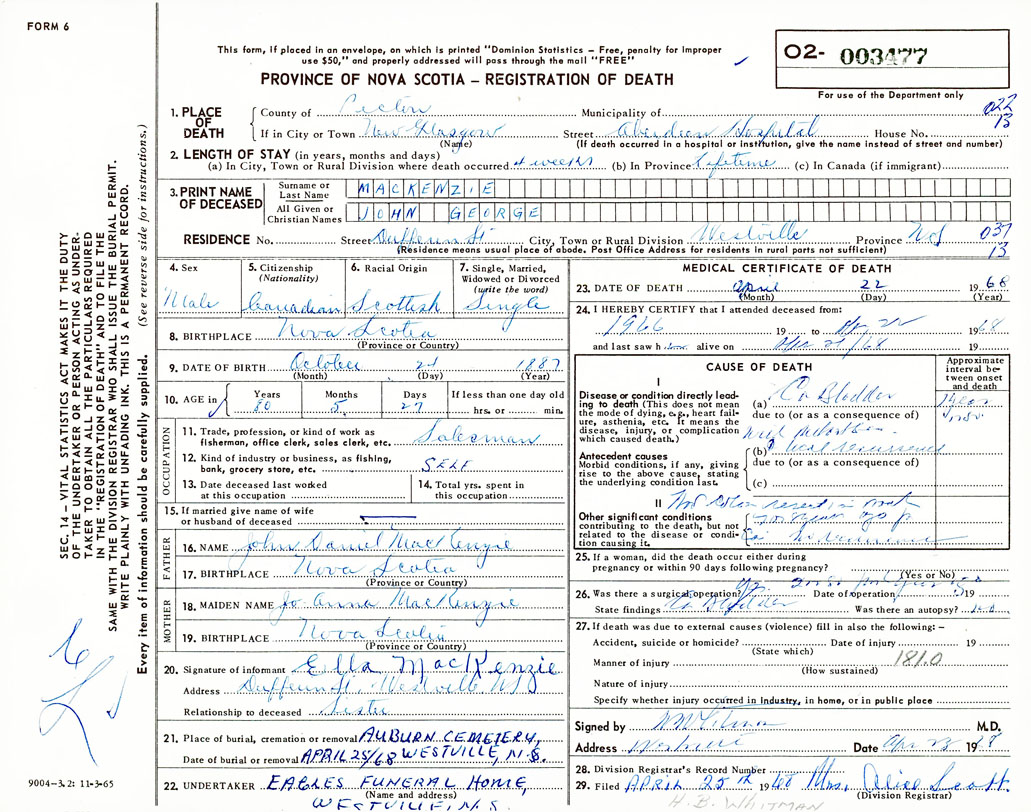 FORM 6
This form, if placed in an envelope, on which is printed "Dominion Statistics – Free, penalty for improper
use $50," and properly addressed will pass through the mail "FREE"
PROVINCE OF NOVA SCOTIA – REGISTRATION OF DEATH
O2- 003477
For use of the Department only
1. PLACE OF DEATH
County of Pictou Municipality of 022
13
If in City or Town New Glasgow Street Aberdeen Hospital House No.
(Name) (If death occurred in a hospital or institution, give the name instead of street and number)
2. LENGTH OF STAY (in years, months and days)
(a) In City, Town or Rural Division where death occurred 4 weeks (b) In Province Lifetime (c) In Canada (if immigrant)
3. PRINT NAME OF DECEASED
Surname or Last Name MACKENZIE
All Given or Christian Names JOHN GEORGE
RESIDENCE No. Street Dufferin St City, Town or Rural Division Westville Province NS 037
13
(Residence means usual place of abode. Post Office Address for residents in rural parts not sufficient)
4. Sex
Male
5. Citizenship
(Nationality)
Canadian
6. Racial Origin
Scottish
7. Single, Married,
Widowed or Divorced
(write the word)
Single
8. BIRTHPLACE Nova Scotia
(Province or Country)
9. DATE OF BIRTH October 24 1887
(Month) (Day) (Year)
10. AGE in
Years Months Days If less than one day old
80 5 27 hrs. or min.
OCCUPATION
11. Trade, profession, or kind of work as
fisherman, office clerk, sales clerk, etc. Salesman
12. Kind of industry or business, as fishing,
bank, grocery store, etc. SELF
13. Date deceased last worked
at this occupation
14. Total yrs. spent in
this occupation
15. If married give name of wife
or husband of deceased
FATHER
16. NAME John Daniel MacKenzie
17. BIRTHPLACE Nova Scotia
(Province or Country)
MOTHER
18. MAIDEN NAME Jo Anna MacKenzie
19. BIRTHPLACE Nova Scotia
(Province or Country)
20. Signature of informant Ella MacKenzie
Address Dufferin St. Westville NS
Relationship to deceased Sister
21. Place of burial, cremation or removal AUBURN CEMETERY,
Date of burial or removal APRIL 25/68 WESTVILLE, N.S.
22. UNDERTAKER EAGLES FUNERAL HOME,
(Name and address)
WESTVILLE, N.S.
MEDICAL CERTIFICATE OF DEATH
23. DATE OF DEATH April 22 1968
(Month) (Day) (Year)
24. I HEREBY CERTIFY that I attended deceased from:
1966 19 to Apr 22 1968
and last saw h im alive on Apr 21/68 19
CAUSE OF DEATH
Approximate
interval be-
tween onset
and death
I
Disease or condition directly lead-
ing to death (This does not mean
the mode of dying, e.g., heart fail-
ure, asthenia, etc. It means the
disease, injury, or complication
which caused death.)
(a) Ca Bladder
due to (or as a consequence of)
Antecedent causes
Morbid conditions, if any, giving
rise to the above cause, stating
the underlying condition last.
(b) local recurrence
due to (or as a consequence of)
(c)
II
Other significant conditions
contributing to the death, but not
related to the disease or condi-
tion causing it.
no recurrence
25. If a woman, did the death occur either during
pregnancy or within 90 days following pregnancy?
(Yes or No)
26. Was there a surgical operation? Date of operation 19
State findings Ca Bladder Was there an autopsy? no
27. If death was due to external causes (violence) fill in also the following: –
Accident, suicide or homicide? Date of injury 19
(State which)
Manner of injury 181.0
(How sustained)
Nature of injury
Specify whether injury occurred in Industry, in home, or in public place
Signed by M.D.
Address Westville Date Apr 23 1968
28. Division Registrar's Record Number
29. Filed APRIL 25th 1968 Mrs. Alice Scott
(Division Registrar)
H. B. WHITMAN
SEC. 14 – VITAL STATISTICS ACT MAKES IT THE DUTY
OF THE UNDERTAKER OR PERSON ACTING AS UNDER-
TAKER TO OBTAIN ALL THE PARTICULARS REQUIRED
IN THE "REGISTRATION OF DEATH" AND TO FILE THE
SAME WITH THE DIVISION REGISTRAR WHO SHALL ISSUE THE BURIAL PERMIT.
WRITE PLAINLY WITH UNFADING INK. THIS IS A PERMANENT RECORD.
Every item of information should be carefully supplied. (See reverse side for instructions.)
9004–3.2: 11-3-65